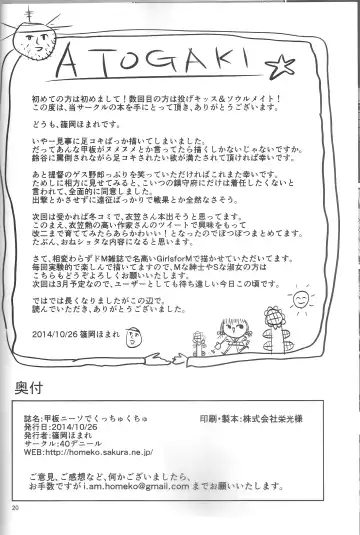 ATOGAKI
初めての方は初めまして！数回目の方は投げキッス＆ソウルメイト！
この度は、当サークルの本を手にとって頂き、ありがとうございます。
どうも、篠岡ほまれです。
いやー見事に足コキばっか描いてしまいました。
だってあんな甲板がヌメヌメとか言ってたら描くしかないじゃないですか。
鈴谷に罵倒されながら足コキされたい欲が満たされて頂ければ幸いです。
あと提督のゲス野郎っぷりを笑っていただければこれまた幸いです。
ためしに相方に見せてみると、こいつの鎮守府にだけは着任したくないと
言われて、全面的に同意しました。
出撃とかさせずに遠征ばっかりで戦果とか全然なさそう。
次回は受かれば冬コミで、衣笠さん本出そうと思ってます。
このまえ、衣笠勢の高い作家さんのツイートで興味をもって
改二まで育ててみたらあらかわいい！となったのでぽつぽつまとめてます。
たぶん、おねショタな内容になると思います。
さて、相変わらずドM雑誌で名高いGirlsforMで描かせていただいてます。
毎回実験的で楽しんで描いてますので、Mな紳士やSな淑女の方は
こちらもどうぞよろしくお願いいたします。
次回は3月予定なので、ユーザーとしても待ち遠しい今日この頃です。
ではでは長くなりましたがこの辺で。
読んでいただき、ありがとうございました。
2014/10/26 篠岡ほまれ
奥付
誌名:甲板ニーソでくっちゅくちゅ
印刷・製本:株式会社栄光様
発行日:2014/10/26
発行者:篠岡ほまれ
サークル:40デニール
WEB:http://homeko.sakura.ne.jp/
ご意見、ご感想など、何かございましたら、
お手数ですが i.am.homeko@gmail.com までお願いいたします。
20